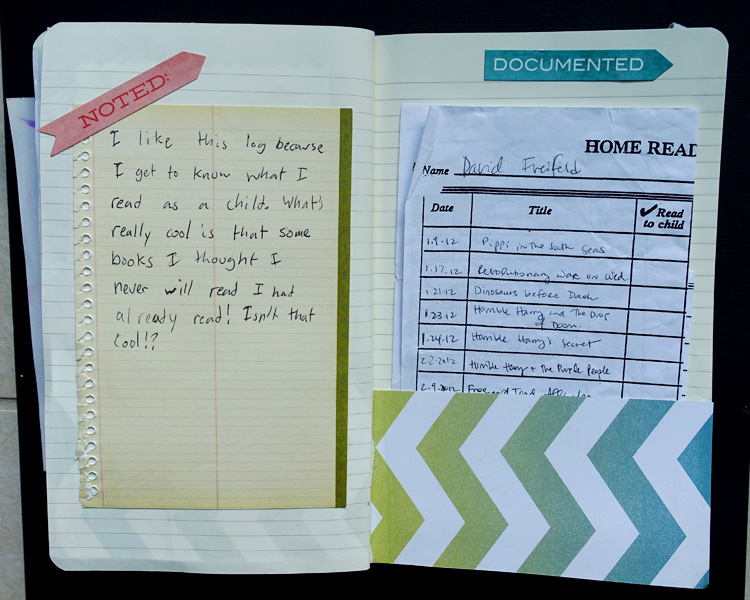 NOTED:
I like this log because
I get to know what I
read as a child. What's
really cool is that some
books I thought I
never will read I had
already read! Isn't that
Cool!?
DOCUMENTED
HOME READ
Name David Freifeld
Date Title ✓ Read to child
1.9.12 Pippi in the South Seas
1.17.12 Revolutionary War on Wed.
1.21.12 Dinosaurs before Dark
1.23.12 Horrible Harry and The Drop
of Doom.
1.24.12 Horrible Harry's Secret
2.2.2012 Horrible Harry + The Purple People
2.9.2012 Frog and Toad